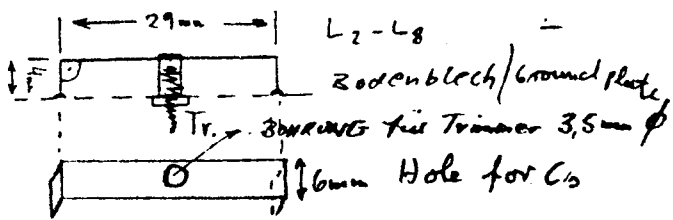 29mm
L2-L8
Bodenblech/Groundplate
Tr.
BOHRUNG für Trimmer 3,5mm φ
6mm
Hole for